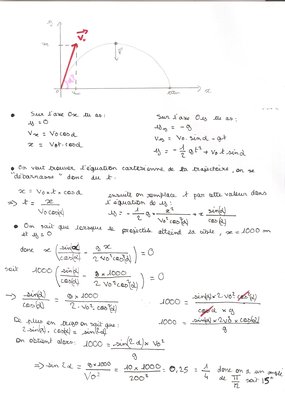 V₀
P
O
x
• Sur l'axe Ox on a :
Sur l'axe Oy on a :
Vx = V₀ cos α
Vy = V₀ . sin α - gt
x = V₀ t . cos α
y = - 1/2 g t² + V₀ t . sin α
• On veut trouver l'équation cartésienne de la trajectoire, on se
"débarrasse" donc du t :
x = V₀ × t × cos α
ensuite on remplace t par cette valeur dans
l'équation de y :
=> t = x / (V₀ cos α)
y = - 1/2 g . x² / (V₀² cos²(α)) + x sin(α) / cos(α)
• On sait que lorsque le projectile atteint la cible, x = 1000 m
et y = 0
donc x (sin(α) / cos(α) - g x / (2 V₀² cos²(α))) = 0
soit 1000 (sin(α) / cos(α) - g × 1000 / (2 V₀² cos²(α))) = 0
=> sin(α) / cos(α) = g × 1000 / (2 V₀² cos²(α))
1000 = sin(α) × 2 V₀² cos²(α) / (cos α × g)
1000 = sin(α) × 2 V₀² × cos(α) / g
De plus en trigo on sait que :
2 sin(α) . cos(α) = sin(2α)
On obtient alors : 1000 = sin(2α) × V₀² / g
=> sin 2α = g × 1000 / V₀² = 10 × 1000 / 200² = 0,25 = 1/4 donc on a un angle
de π/12 soit 15°